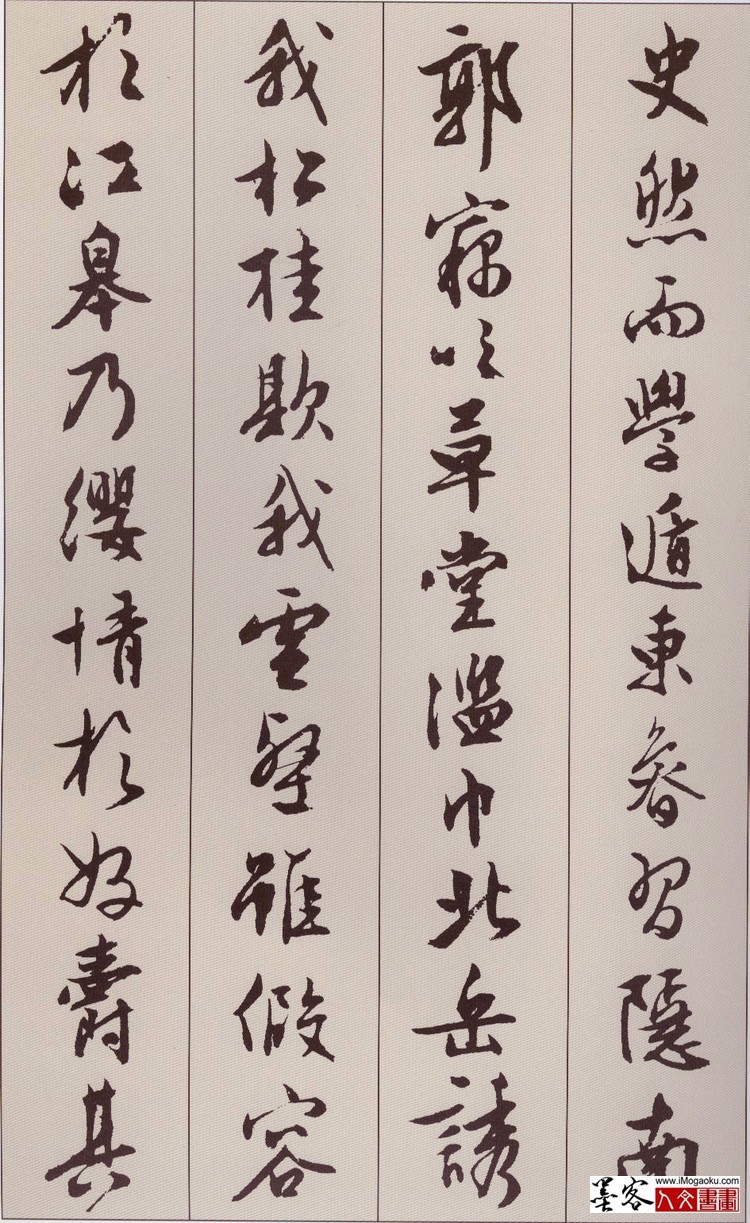 史然而學遁東魯習隱南
郭竊吹草堂濫巾北岳誘
我松桂欺我雲壑雖假容
於江皋乃纓情於好爵其
www.iMogaoku.com
墨客人文書畫